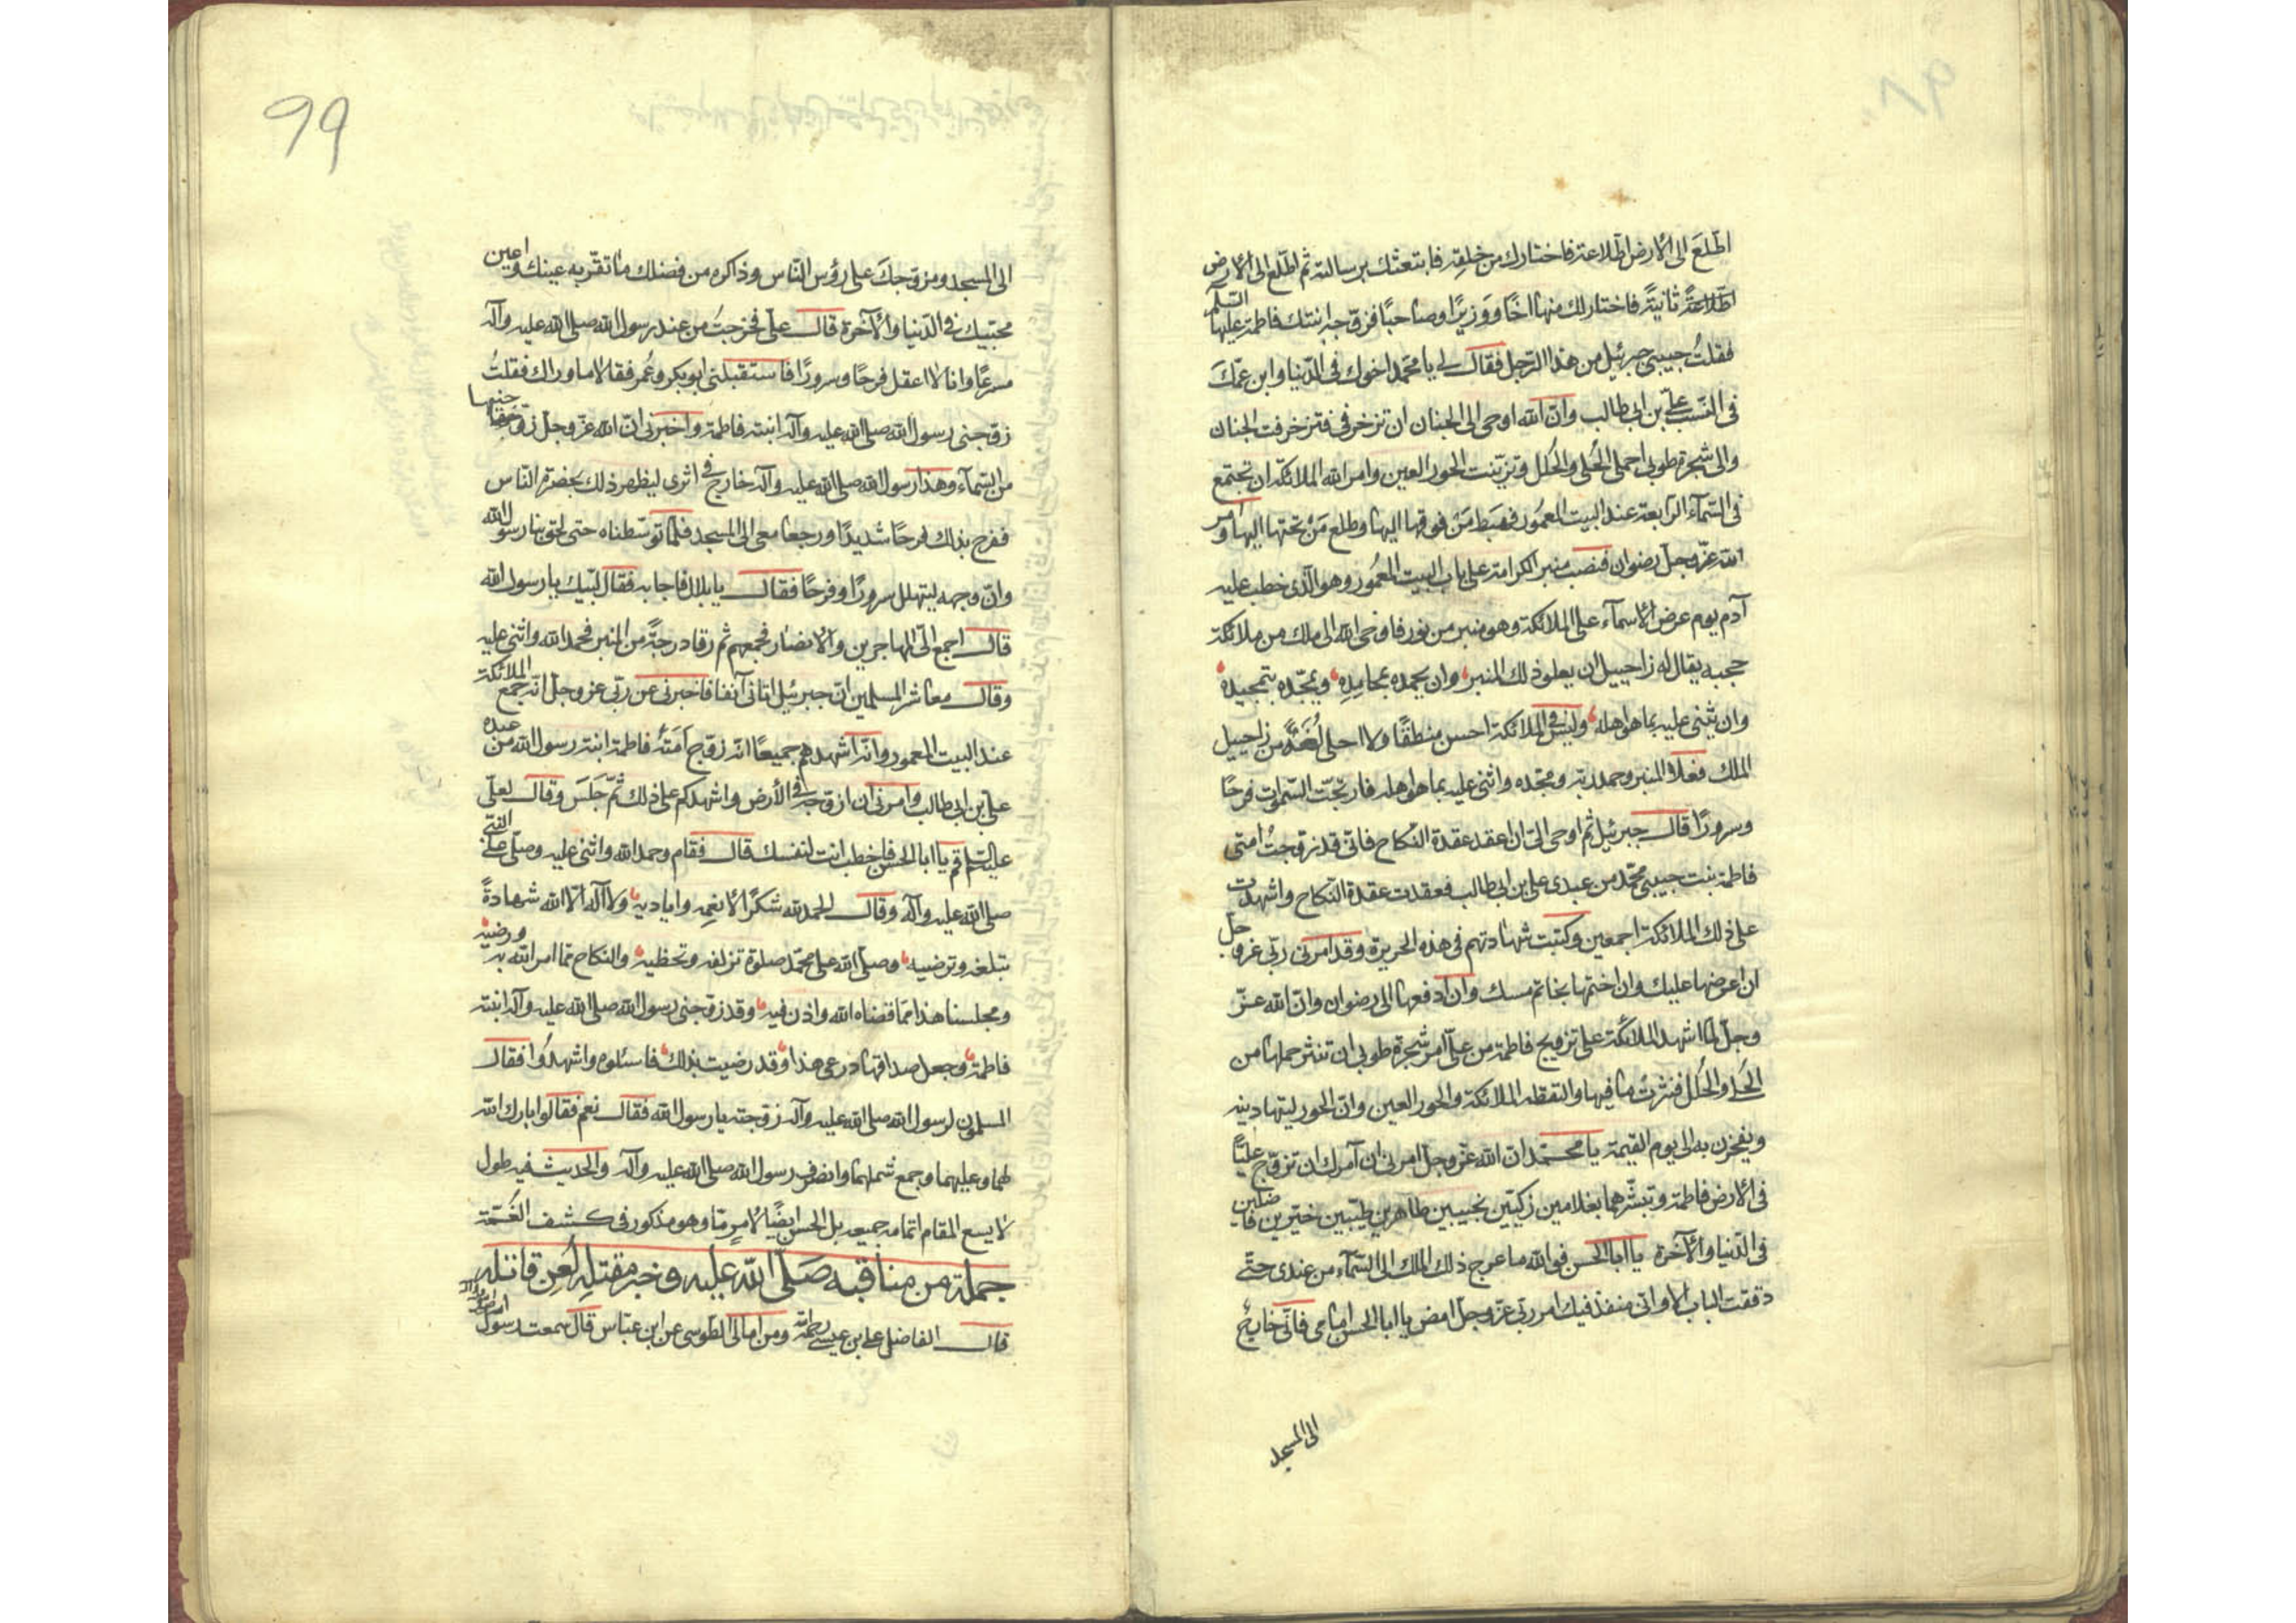 اطّلعَ الى الأرض اطّلاعة فاختارك من خلقِه فابتعثك برسالته ثم اطّلع الى الأرض
اطّلاعةً ثانيةً فاختار لك منها اخًا ووزيرًا وصاحبًا فزوّجه ابنتك فاطمة عليها السّلم
فقلتُ حبيبى جبرئيل من هذا الرّجل فقال لى يا محمّد اخوك فى الدّنيا وابن عمّك
فى النّسب علىّ بن ابى طالب وانّ الله اوحى الى الجنان ان تزخرفى فتزخرفت الجنان
والى شجرة طوبى احملى الحُلى والحُلل وتزيّنت الحور العين وامر الله الملائكة ان تجتمع
فى السّمآء الرّابعة عند البيت المعمُور فهبَط مَن فوقها اليها وطلع مَن تحتها اليها وامر
الله عزّ وجلّ رضوان فنصب منبر الكرامة على باب البيت المعمُور وهو الّذى خطب عليه
آدم يوم عرض الأسمآء على الملائكة وهو منبر من نور فاوحى الله الى ملك من ملائكة
حجبه يقال له زاحييل ان يعلو ذلك المنبر وان يحمده بمحامِدِه ويمجّده بتمجيده
وان يثنى عليه بما هو اهله وليس فى الملائكة احسن منطقًا ولا احلى لُغَةً من راحيل
الملك فعلا المنبر وحمد ربّه ومجّده واثنى عليه بما هو اهله فارتجّت السّموات فرحًا
وسرورًا قال جبرئيل ثم اوحى الىّ ان اعقد عقدة النّكاح فانّى قد زوّجتُ امتى
فاطمة بنت حبيبى محمّد من عبدى على بن ابى طالب فعقدت عقدة النّكاح واشهدت
على ذلك الملائكة اجمعين وكتبت شهادتهم فى هذه الحريرة وقد امرنى ربّى عزّ وجلّ
ان اعرضها عليك وان اختمها بخاتم مسك وان ادفعها الى رضوان وانّ الله عزّ
وجلّ لمّا اشهد الملائكة على تزويج فاطمة من علىّ امر شجرة طوبى ان تنثر حملها من
الحُلى والحُلل فنثرتْ ما فيها والتقطه الملائكة والحور العين وانّ الحور ليتهادينه
ويفخرن به الى يوم القيمة يا محمّد ان الله عزّ وجلّ امرنى ان آمرك ان تزوّج عليًّا
فى الأرض فاطمة وتبشّرهما بغلامين زكيّين نجيبين طاهرين طيّبين خيّرين فاضلين
فى الدّنيا والآخرة يا ابا الحسن فوالله ما عرج ذلك الملك الى السّمآء من عندى حتّى
دققت الباب الا وانّى منفذ فيك امر ربّى عزّ وجلّ امض يا ابا الحسن امامى فانّى خارج
الى المسجد
99
الى المسجد ومزوّجك على رؤس النّاس وذاكره من فضلك ما تقرّ به عينك واعين
محبّيك فى الدّنيا والآخرة قال علىّ فخرجتُ من عند رسول الله صلى الله عليه وآله
مسرعًا وانا لا اعقل فرحًا وسرورًا فاستقبلنى ابو بكر وعُمر فقالا ما وراك فقلتُ
زوّجنى رسول الله صلى الله عليه وآله ابنته فاطمة واخبرنى انّ الله عزّ وجلّ زوّجنيها
من السّمآء وهذا رسول الله صلى الله عليه وآله خارج فى اثرى ليظهر ذلك بحضرة النّاس
ففرح بذلك فرحًا شديدًا ورجعا معى الى المسجد فلمّا توسّطناه حتى لحق بنا رسول الله
وانّ وجهه ليتهلل سرورًا وفرحًا فقال يا بلال فاجابه فقال لبّيك يا رسول الله
قال اجمع الىّ المهاجرين والأنصار فجمعهم ثم رقا درجةً من المنبر فحمد الله واثنى عليه
وقال معاشر المسلمين انّ جبرئيل اتانى آنفًا فاخبرنى عن ربّى عزّ وجلّ انّه جمع الملائكة
عند البيت المعمور وانّه اشهدهم جميعًا انّه زوّج اَمَتَه فاطمة ابنة رسول الله من عبده
على بن ابى طالب وامرنى ان ازوّجه فى الأرض واشهدكم على ذلك ثمّ جَلَسَ وقال لعلى
عليه السّلم قم يا ابا الحسن فاخطب انت لنفسك قال فقام وحمد الله واثنى عليه وصلّى على النّبىّ
صلى الله عليه وآله وقال الحمد لله شكرًا لأنعُمِه واياديه ولا اله الّا الله شهادةً
تبلغه وترضيه وصلّى الله على محمّد صلوة تزلفه وتحظيه والنكاح ممّا امر الله به ورضيه
ومجلسنا هذا ممّا قضاه الله واذن فيه وقد زوّجنى رسول الله صلى الله عليه وآله ابنته
فاطمة وجعل صداقها درعى هذا وقد رضيت بذلك فاسئلوه واشهدُوا فقال
المسلمون لرسول الله صلى الله عليه وآله زوّجته يا رسول الله فقال نعم فقالوا بارك الله
لهما وعليهما وجمع شملهما وانصرف رسول الله صلى الله عليه وآله والحديث فيه طول
لا يسع المقام اتمامه جميعه بل الحسن ايضًا لأمرٍ مّا وهو مذكور فى كشف الغُمّة
جملة من مناقبه صَلّى الله عليه وخبر مقتلِه لُعِن قاتله
قال الفاضل على بن عيسى رحمه الله ومن امالى الطّوسى عن ابن عبّاس قال سمعت رسول